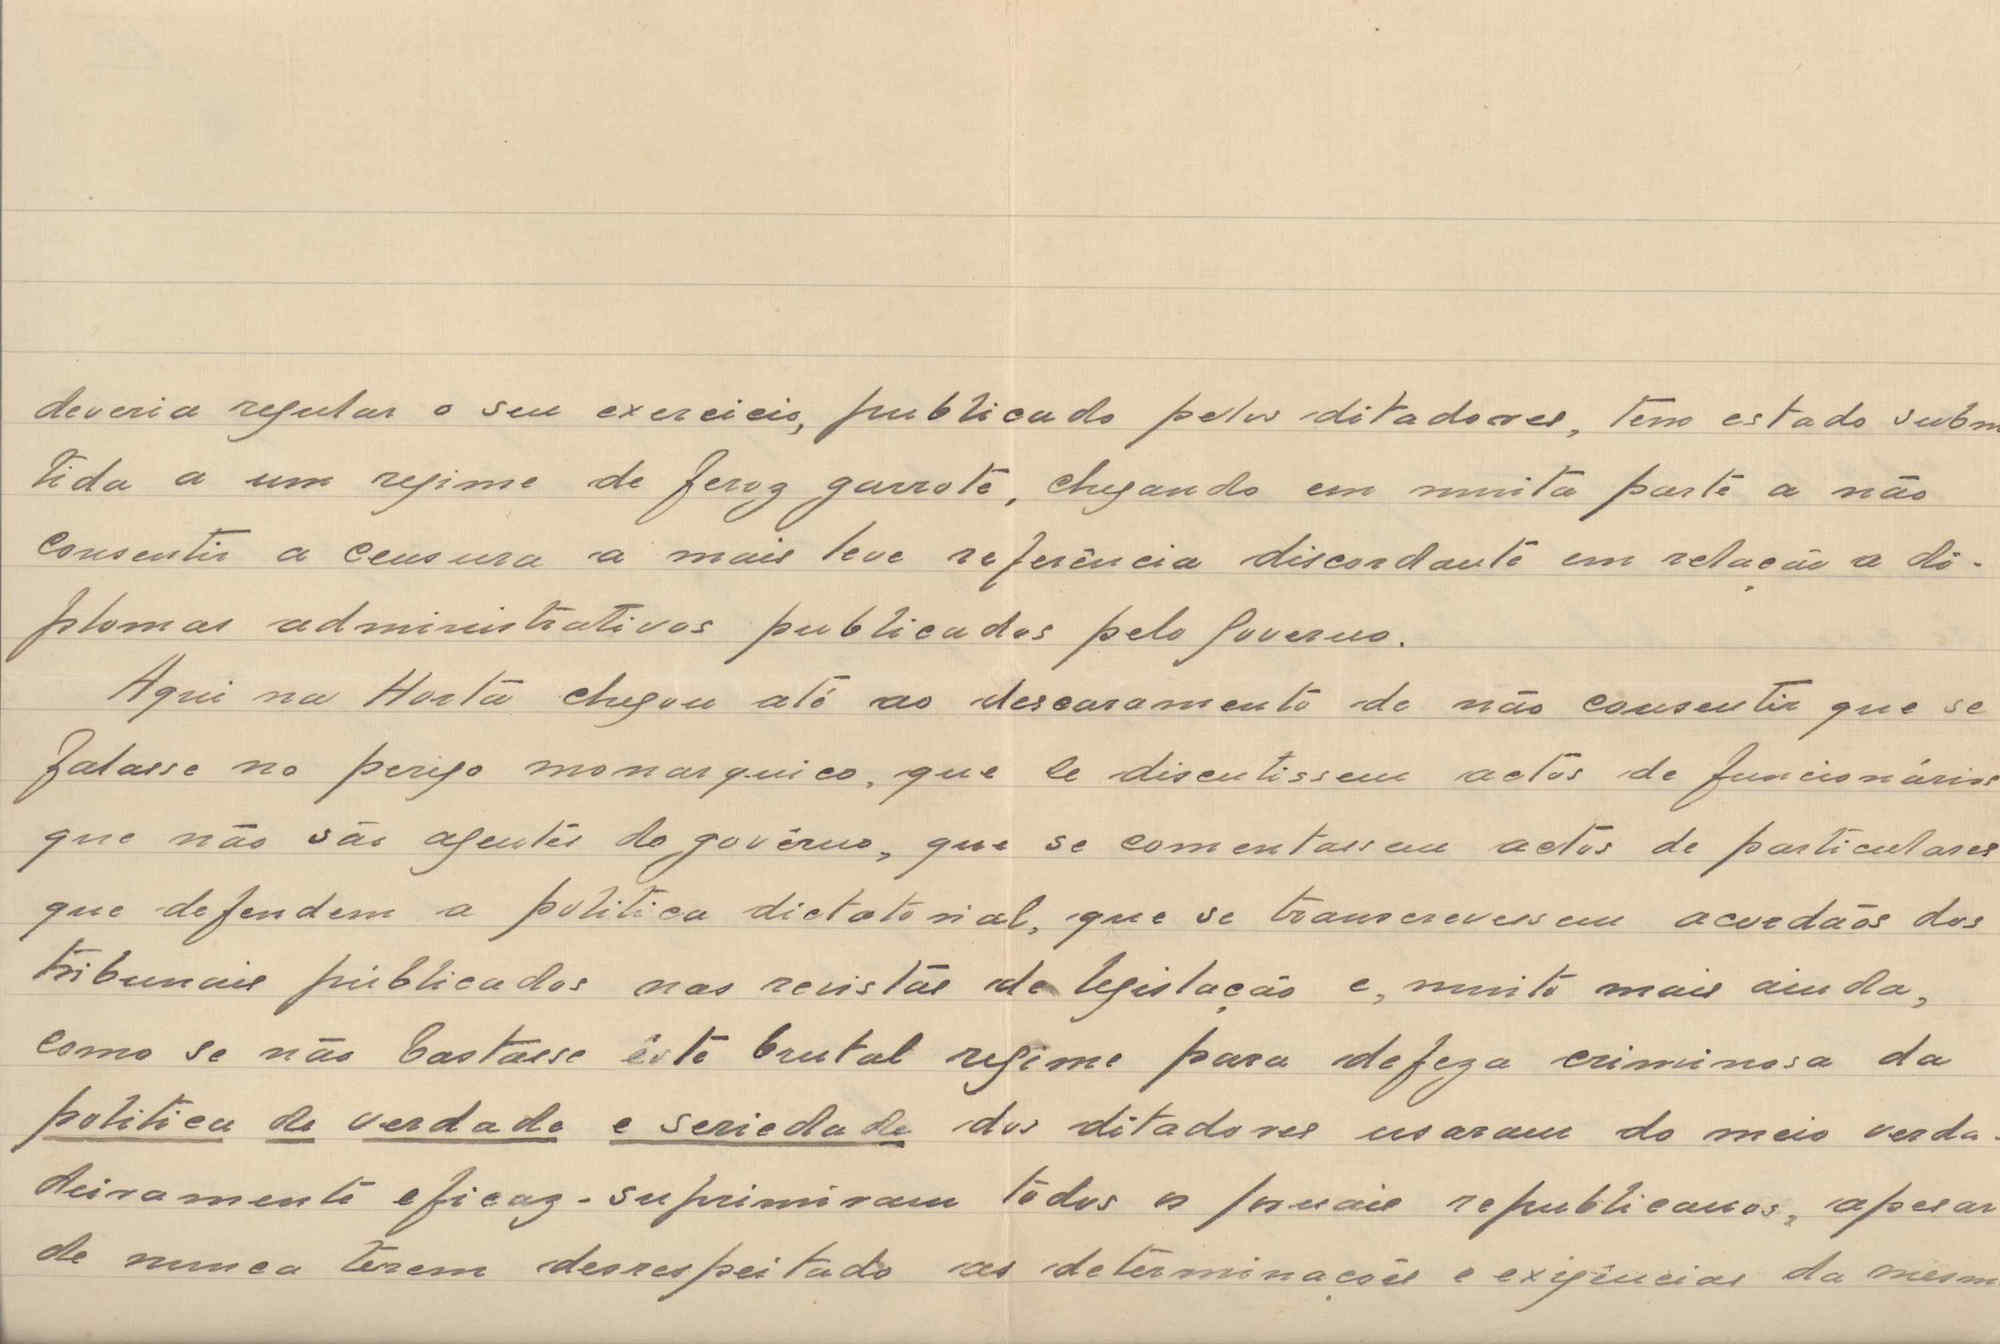 deveria regular o seu exercicio, publicado pelos ditadores, tem estado subm
tida a um regime de feroz garrote, chegando em muita parte a não
consentir a censura a mais leve referência discordante em relação a di-
plomas administrativos publicados pelo Governo.
Aqui na Horta chegou até ao descaramento de não consentir que se
falasse no perigo monarquico, que se discutissem actos de funcionários
que não são agentes do govêrno, que se comentassem actos de particulares
que defendem a politica dictatorial, que se transcrevessem acordãos dos
tribunais públicados nas revistas de legislação e, muito mais ainda,
como se não bastasse êste brutal regime para defeza criminosa da
politica de verdade e seriedade dos ditadores usaram do meio verda-
deiramente eficaz - suprimiram todos os jornais republicanos, apesar
de nunca terem desrespeitado as determinações e exigências da mesm